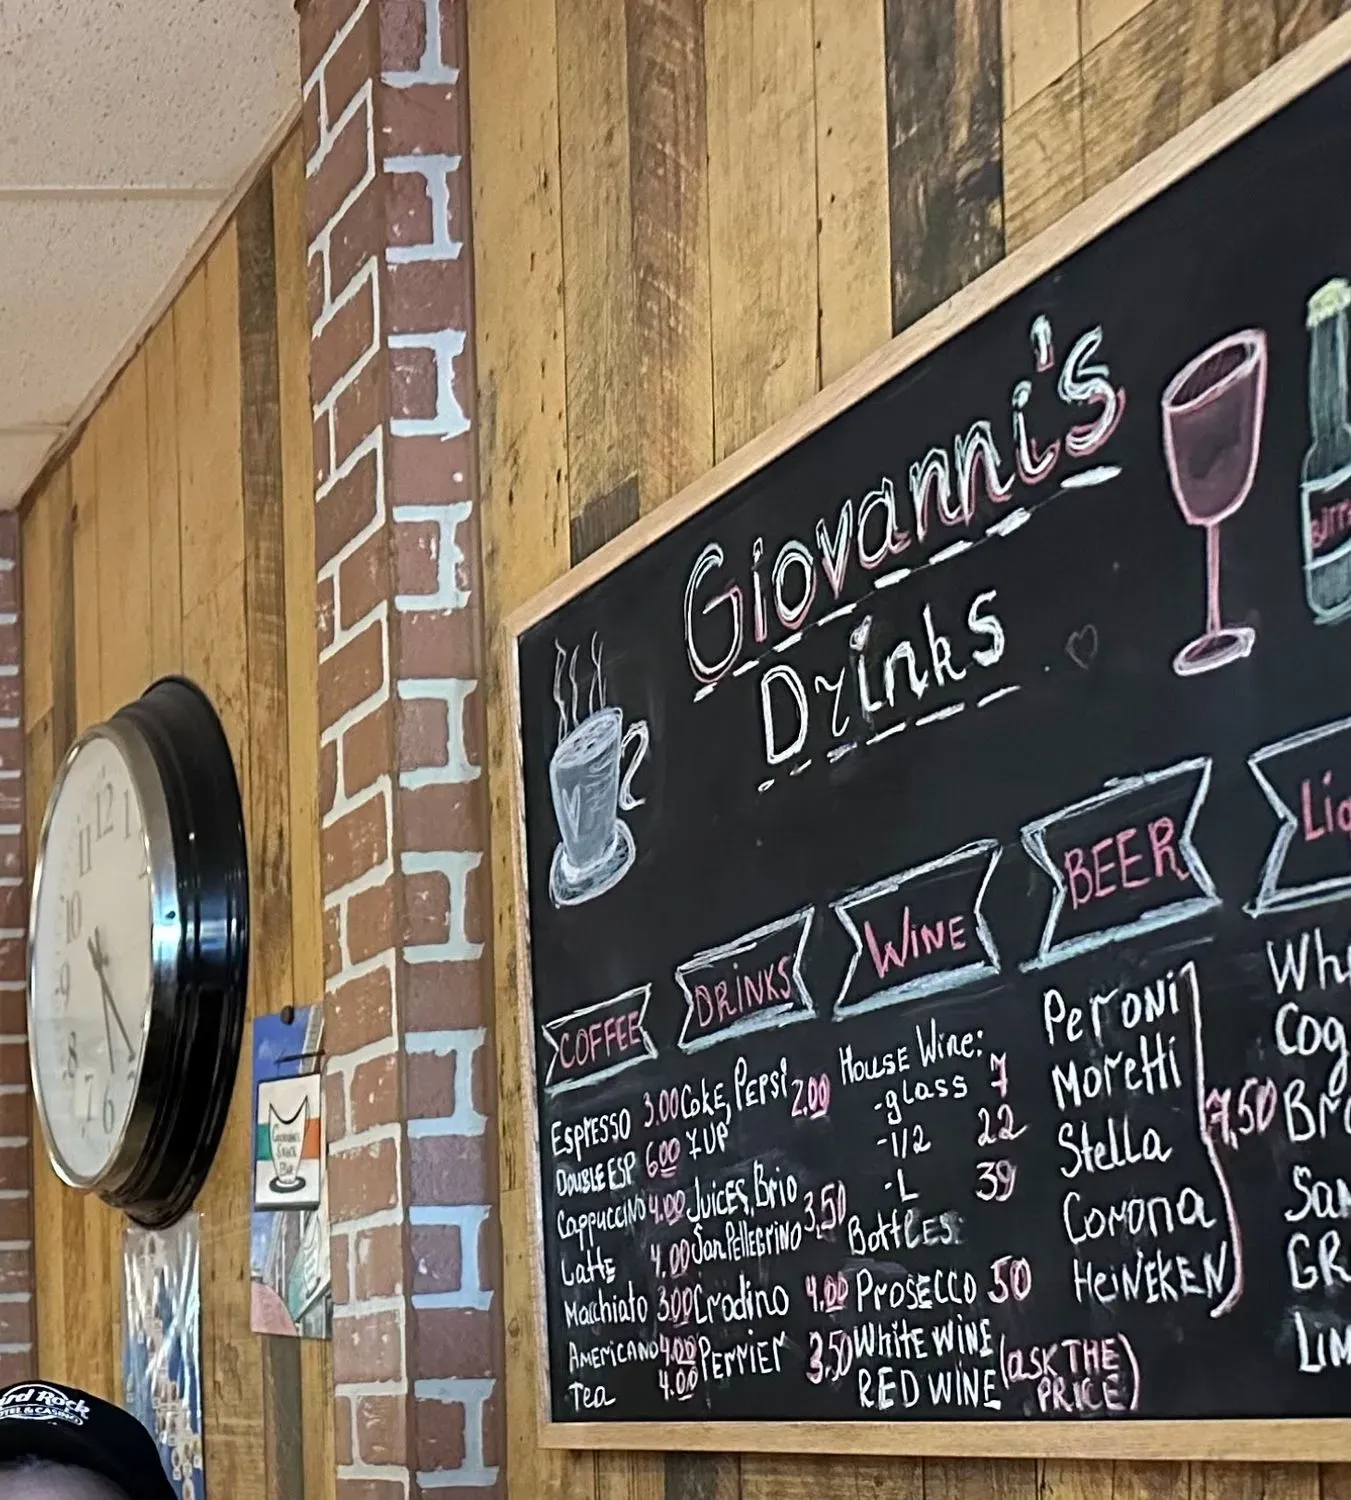 Giovanni's
Drinks
COFFEE
ESPRESSO 3.00
DOUBLE ESP 6.00
Cappuccino 4.00
Latte 4.00
Macchiato 3.00
AMERICANO 4.00
Tea 4.00
DRiNKS
Coke, Pepsi 2.00
7UP
Juices, Brio
San Pellegrino 3,50
Crodino 4.00
Perrier 3,50
WiNE
House Wine:
-glass 7
-1/2 22
-L 39
Bottles:
Prosecco 50
White WINE
RED WINE
(ASK THE
PRICE)
BEER
Peroni
Moretti
Stella
Corona
HeiNEKEN
7,50
12
1
11
10
9
8
7
6
Giovanni's
Snack
Bar
Rock
HOTEL & CASINO